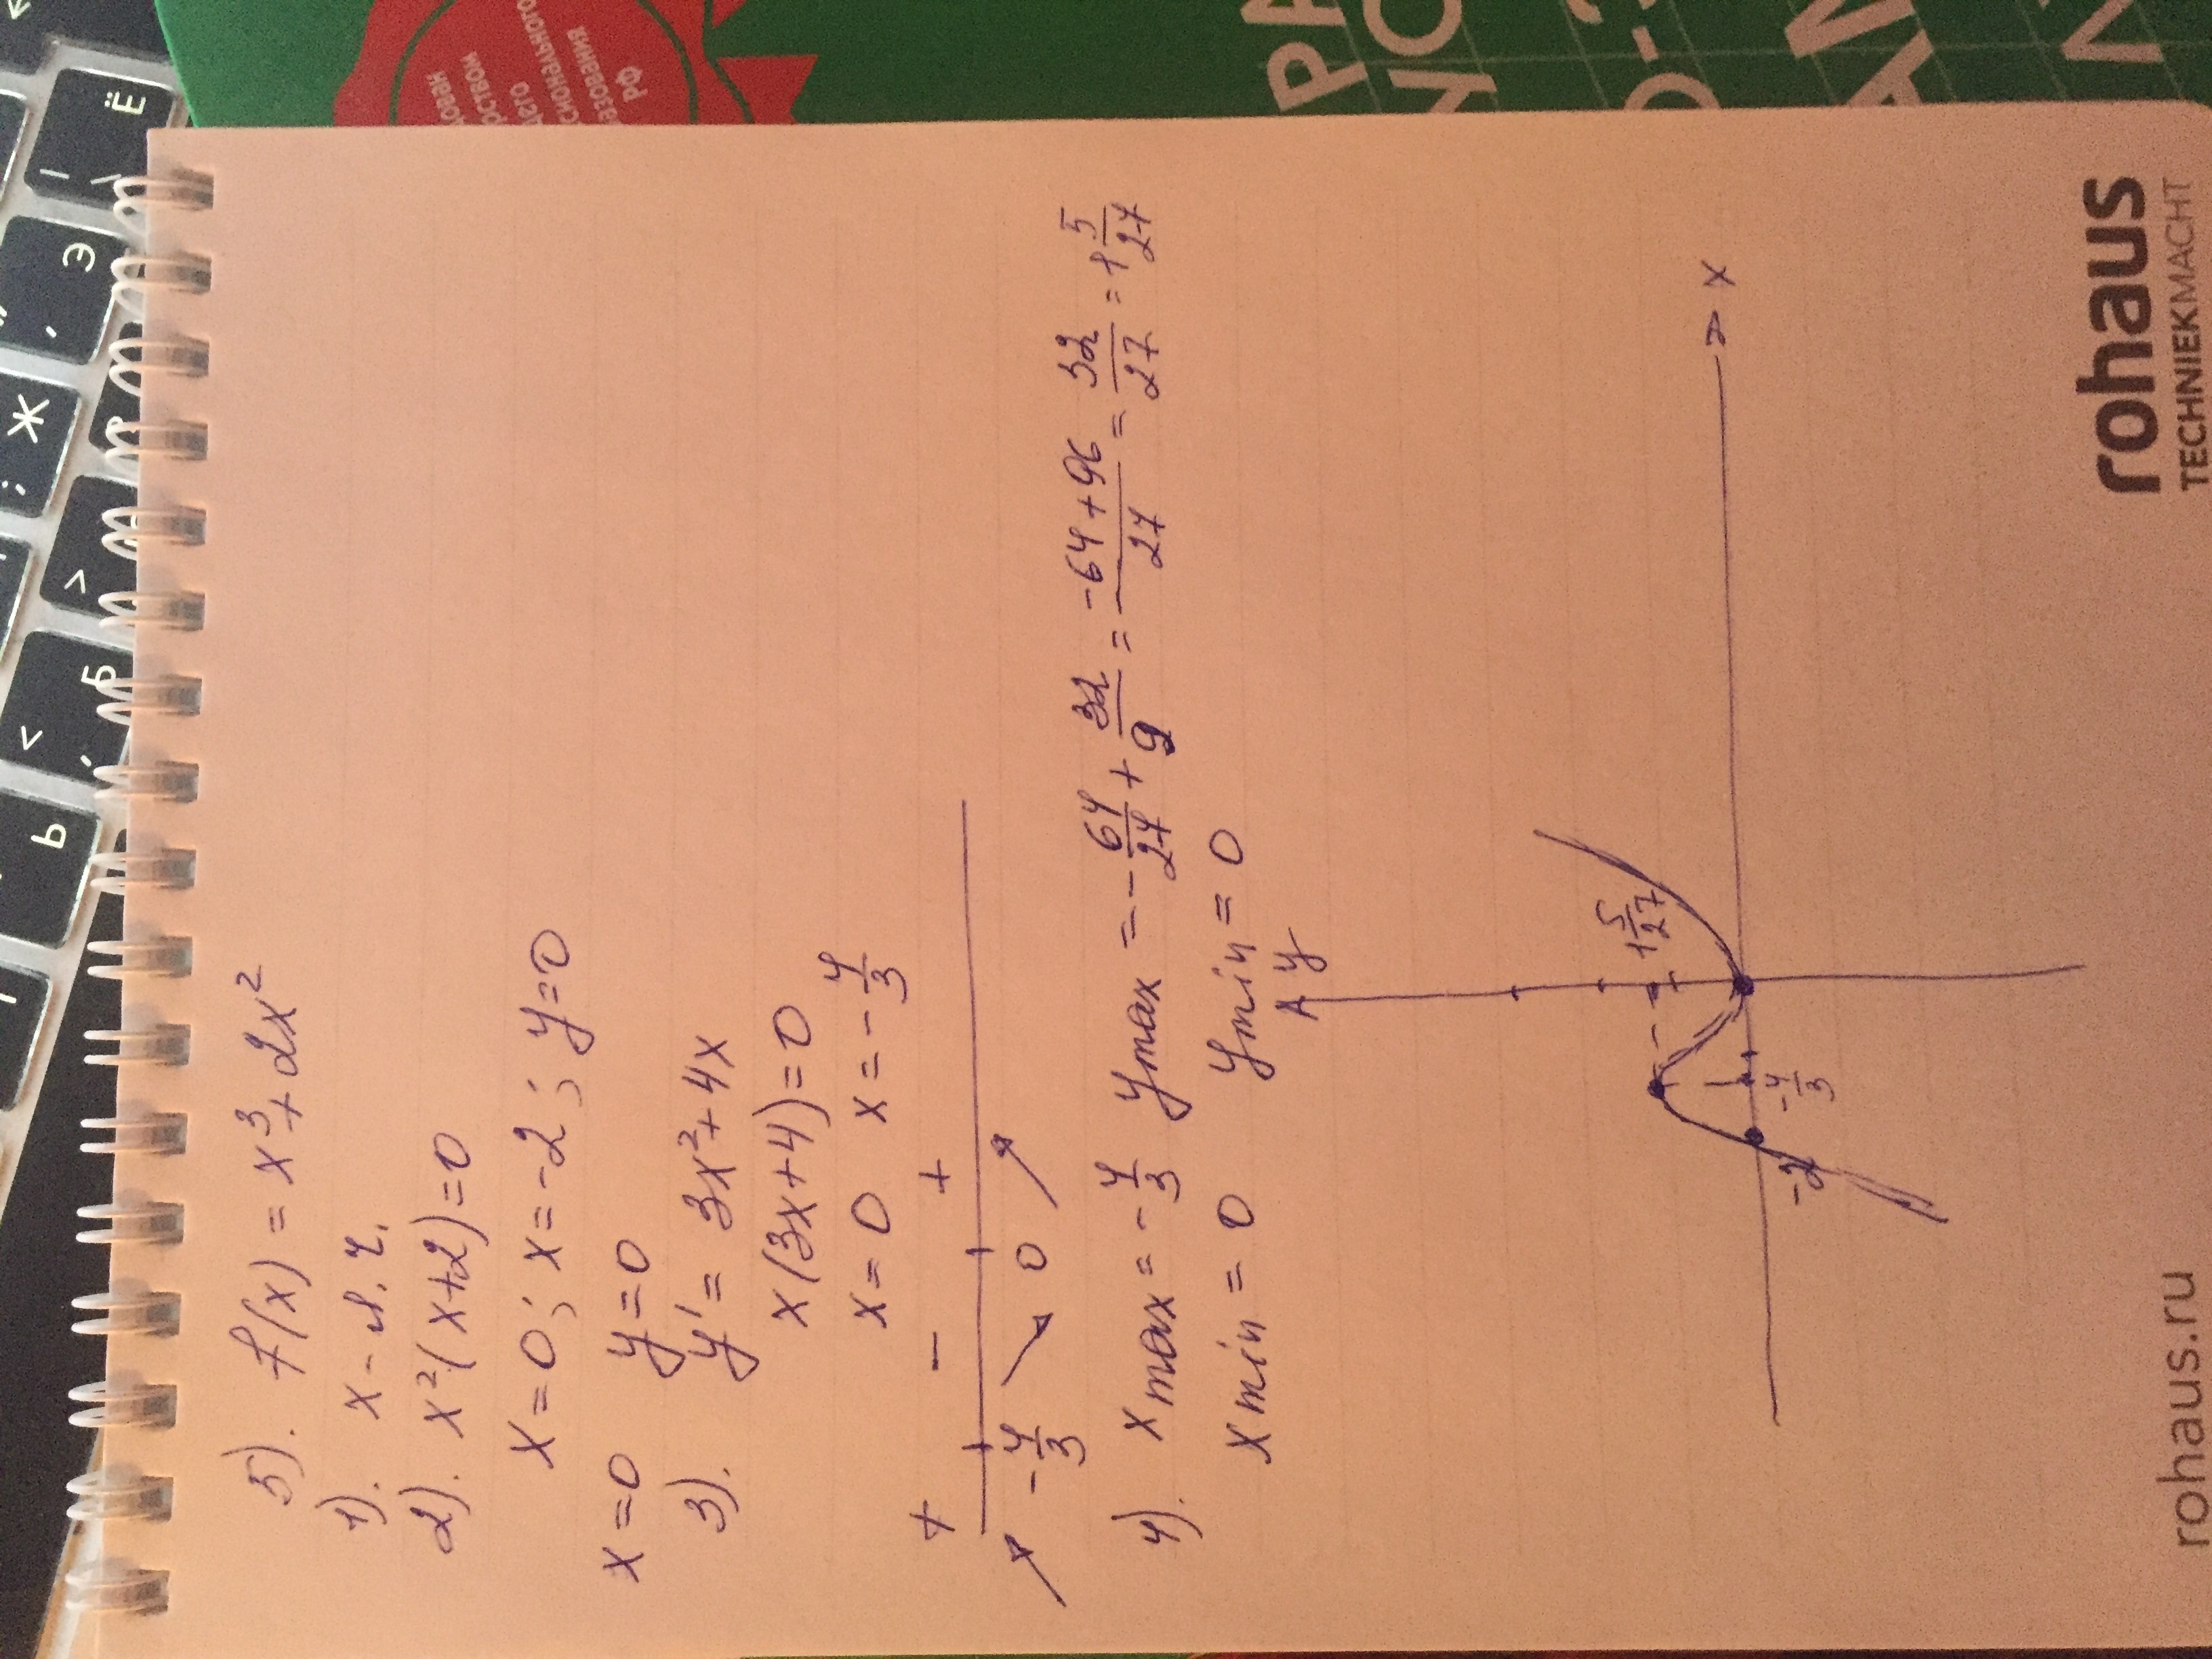 5). f(x) = x³ + 2x²
1). x - л.ч.
2). x²(x+2)=0
x=0; x=-2; y=0
x=0 y=0
3). y' = 3x² + 4x
x(3x+4)=0
x=0 x=-4/3
+ - +
-4/3 0
4). x max = -4/3 y max = -64/27 + 32/9 = (-64+96)/27 = 32/27 = 1 5/27
x min = 0 y min = 0
y
1 5/27
x
-2 -4/3
rohaus.ru
rohaus
TECHNIEKMACHT
РФ
Ё
Э
Ж
Б
Ь